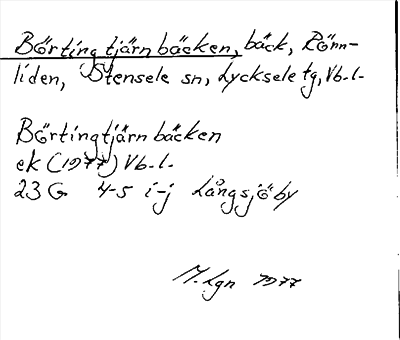 Börtingtjärnbäcken, bäck, Rönn-
liden, Stensele sn, Lycksele tg, Vb.l.
Börtingtjärnbäcken
ek (1977) Vb.l.
23 G 4-5 i-j Långsjöby
M. Lgn 1977